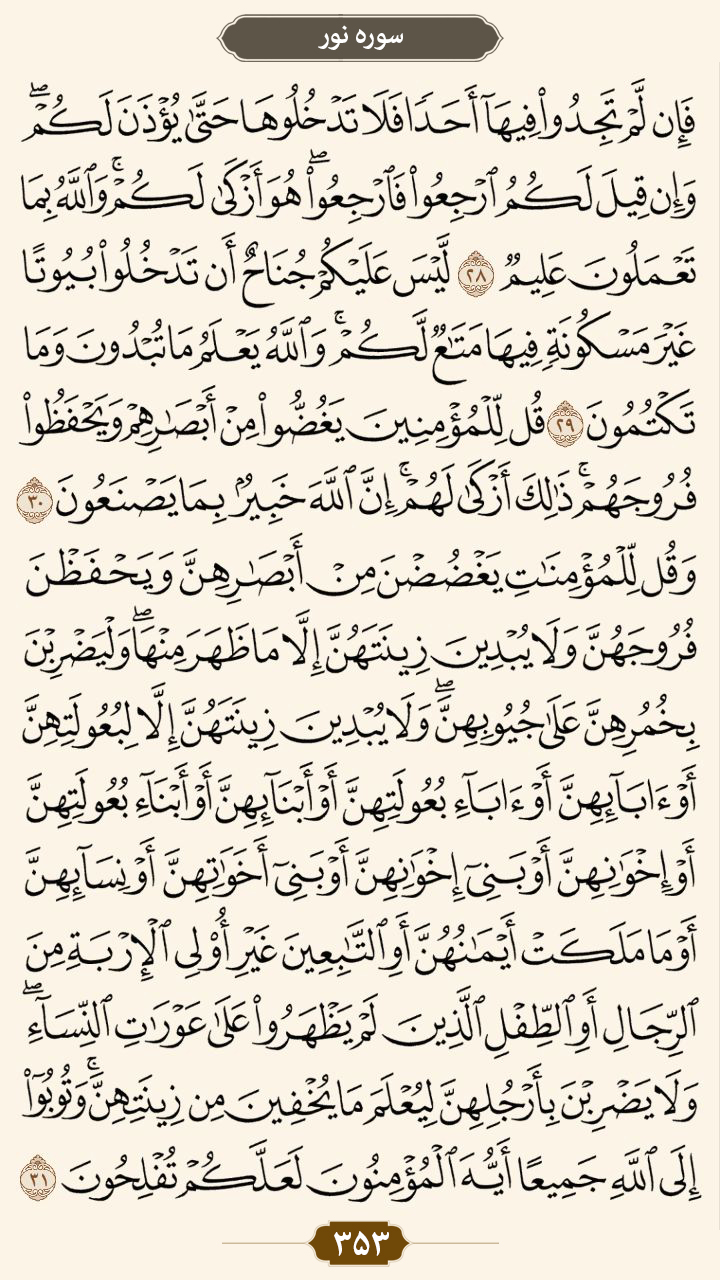 سوره نور
فَإِن لَّمْ تَجِدُوا۟ فِيهَآ أَحَدًا فَلَا تَدْخُلُوهَا حَتَّىٰ يُؤْذَنَ لَكُمْ ۖ
وَإِن قِيلَ لَكُمُ ٱرْجِعُوا۟ فَٱرْجِعُوا۟ ۖ هُوَ أَزْكَىٰ لَكُمْ ۚ وَٱللَّهُ بِمَا
تَعْمَلُونَ عَلِيمٌ ٢٨ لَّيْسَ عَلَيْكُمْ جُنَاحٌ أَن تَدْخُلُوا۟ بُيُوتًا
غَيْرَ مَسْكُونَةٍ فِيهَا مَتَـٰعٌ لَّكُمْ ۚ وَٱللَّهُ يَعْلَمُ مَا تُبْدُونَ وَمَا
تَكْتُمُونَ ٢٩ قُل لِّلْمُؤْمِنِينَ يَغُضُّوا۟ مِنْ أَبْصَـٰرِهِمْ وَيَحْفَظُوا۟
فُرُوجَهُمْ ۚ ذَٰلِكَ أَزْكَىٰ لَهُمْ ۚ إِنَّ ٱللَّهَ خَبِيرٌۢ بِمَا يَصْنَعُونَ ٣٠
وَقُل لِّلْمُؤْمِنَـٰتِ يَغْضُضْنَ مِنْ أَبْصَـٰرِهِنَّ وَيَحْفَظْنَ
فُرُوجَهُنَّ وَلَا يُبْدِينَ زِينَتَهُنَّ إِلَّا مَا ظَهَرَ مِنْهَا ۖ وَلْيَضْرِبْنَ
بِخُمُرِهِنَّ عَلَىٰ جُيُوبِهِنَّ ۖ وَلَا يُبْدِينَ زِينَتَهُنَّ إِلَّا لِبُعُولَتِهِنَّ
أَوْ ءَابَآئِهِنَّ أَوْ ءَابَآءِ بُعُولَتِهِنَّ أَوْ أَبْنَآئِهِنَّ أَوْ أَبْنَآءِ بُعُولَتِهِنَّ
أَوْ إِخْوَٰنِهِنَّ أَوْ بَنِىٓ إِخْوَٰنِهِنَّ أَوْ بَنِىٓ أَخَوَٰتِهِنَّ أَوْ نِسَآئِهِنَّ
أَوْ مَا مَلَكَتْ أَيْمَـٰنُهُنَّ أَوِ ٱلتَّـٰبِعِينَ غَيْرِ أُو۟لِى ٱلْإِرْبَةِ مِنَ
ٱلرِّجَالِ أَوِ ٱلطِّفْلِ ٱلَّذِينَ لَمْ يَظْهَرُوا۟ عَلَىٰ عَوْرَٰتِ ٱلنِّسَآءِ ۖ
وَلَا يَضْرِبْنَ بِأَرْجُلِهِنَّ لِيُعْلَمَ مَا يُخْفِينَ مِن زِينَتِهِنَّ ۚ وَتُوبُوٓا۟
إِلَى ٱللَّهِ جَمِيعًا أَيُّهَ ٱلْمُؤْمِنُونَ لَعَلَّكُمْ تُفْلِحُونَ ٣١
۳۵۳